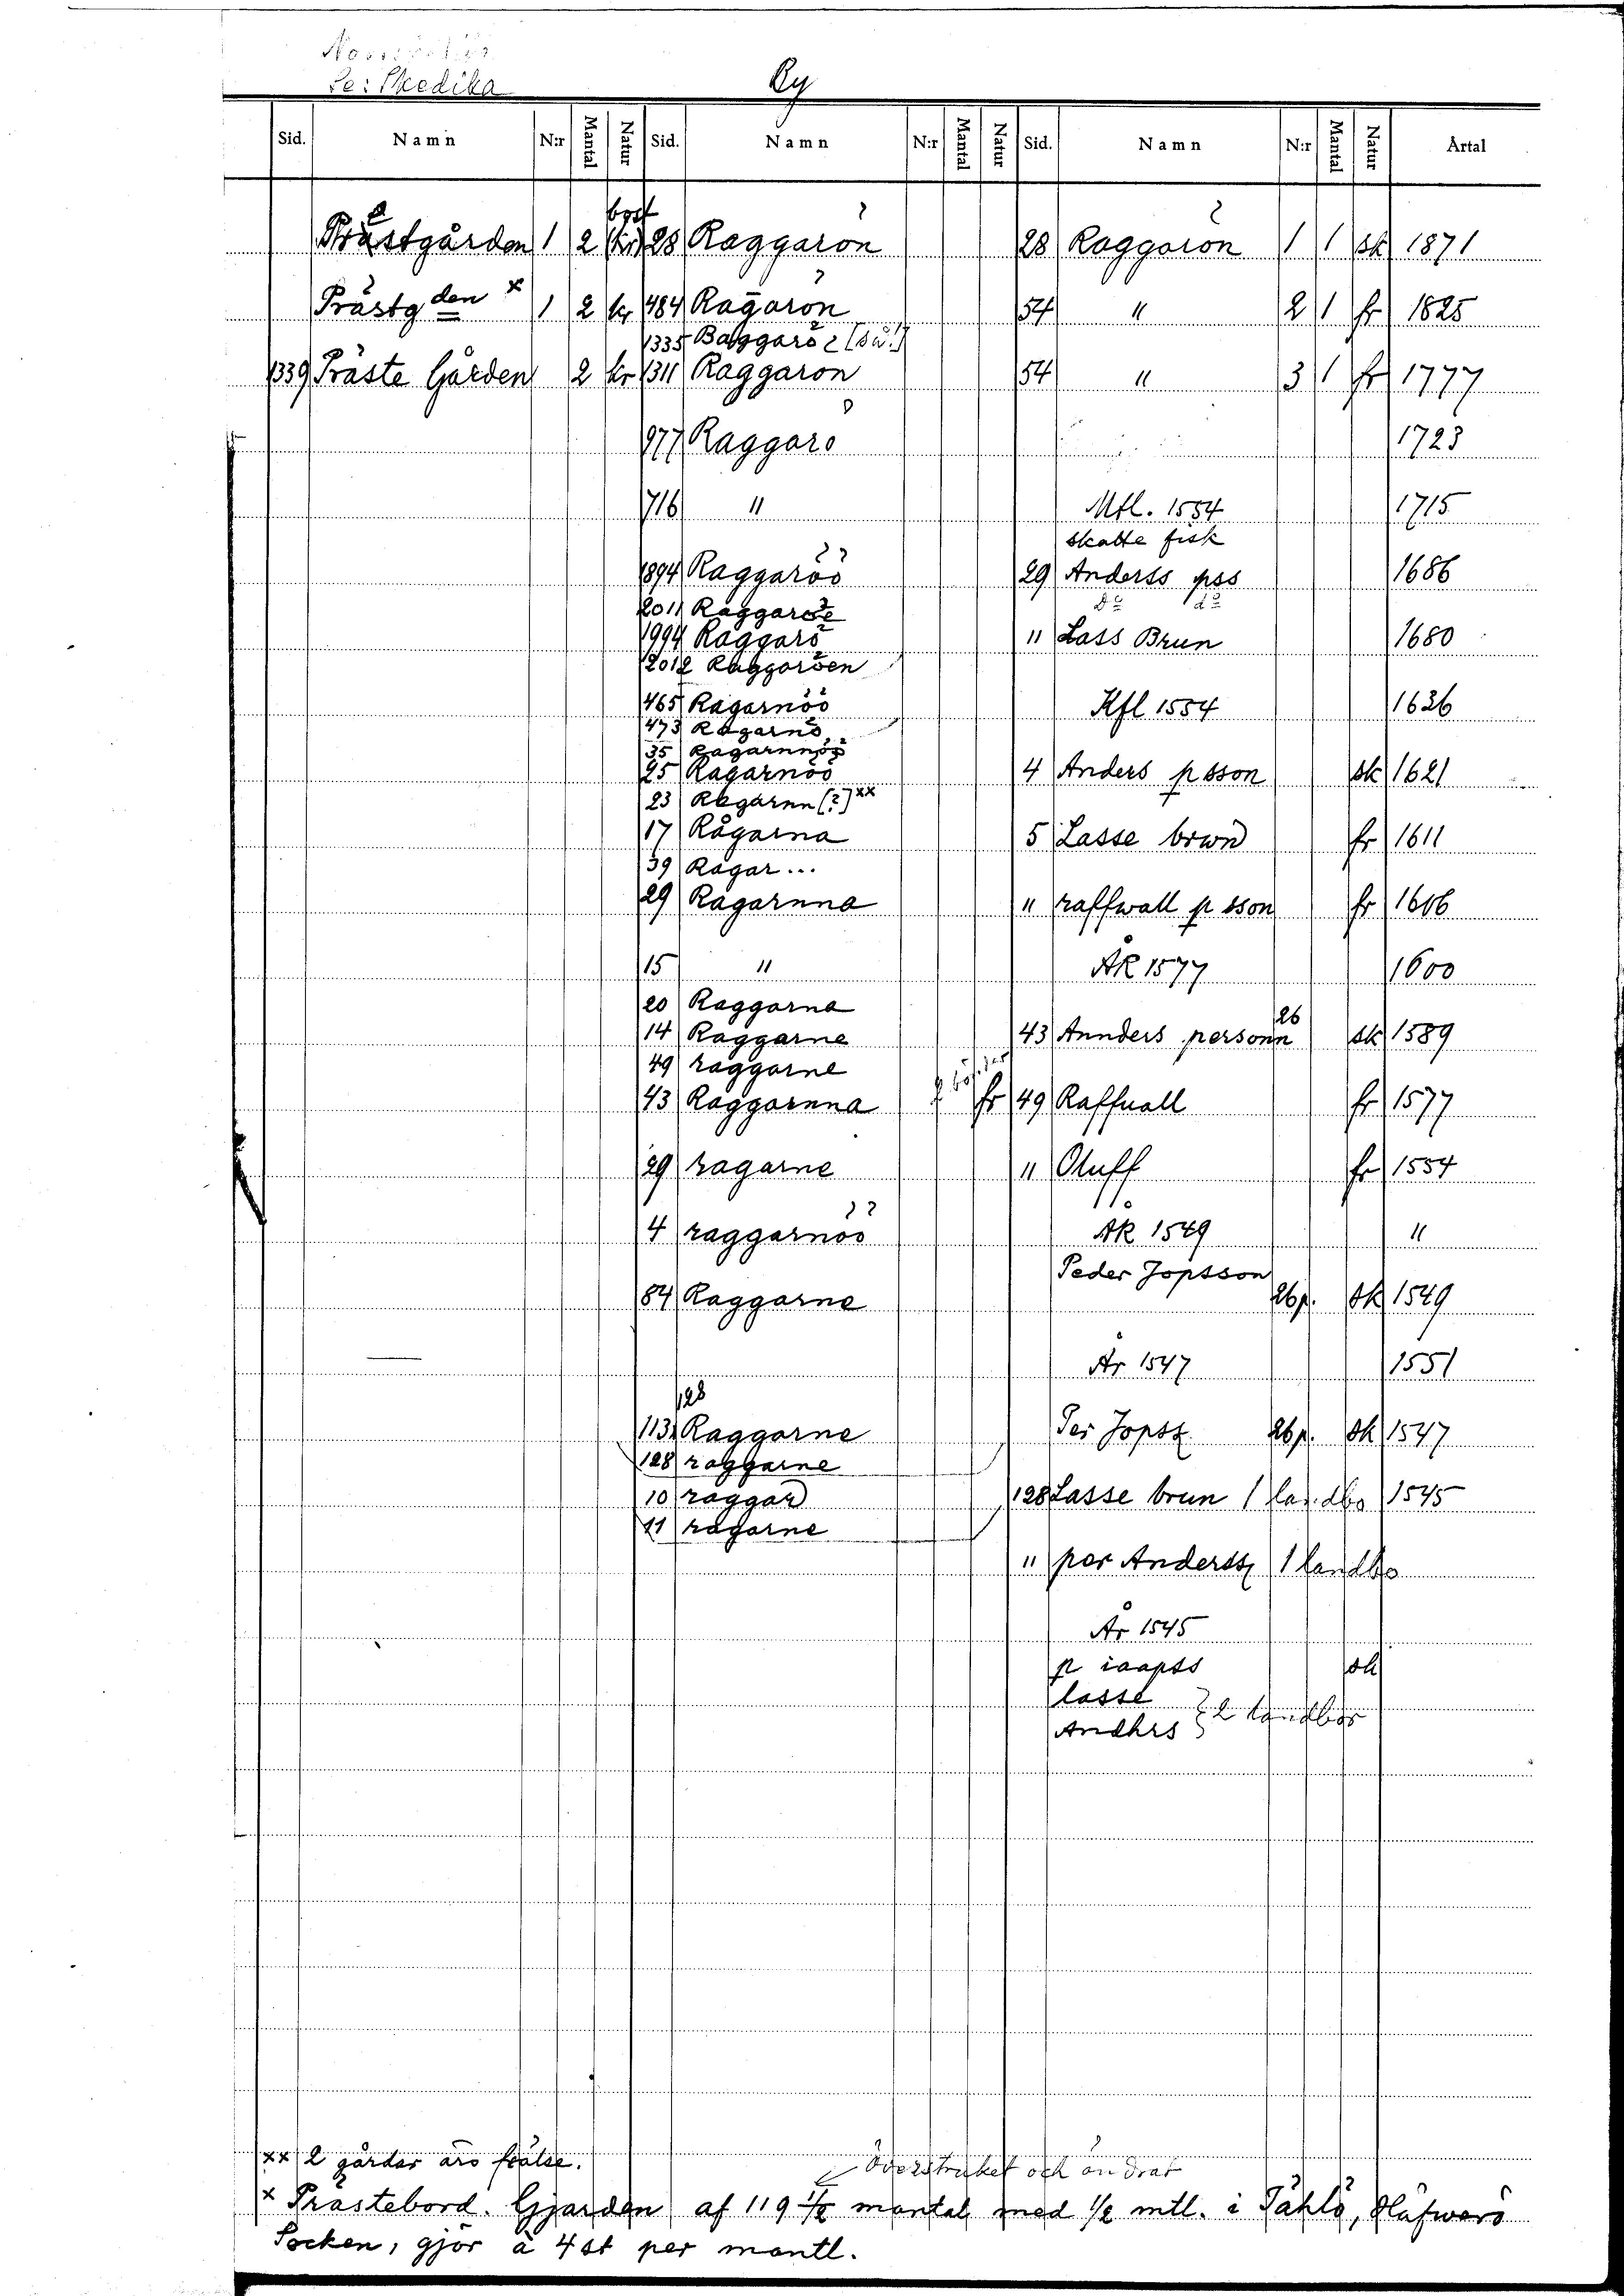 Se: Skedika
By
Sid. Namn N:r Mantal Natur Sid. Namn N:r Mantal Natur Sid. Namn N:r Mantal Natur Årtal
bost
Prästgården 1 2 (kr) 28 Raggarön 28 Raggarön 1 1 sk 1871
Prästgden x 1 2 kr 484 Ragarön 54 " 2 1 fr 1825
1335 Baggarö [så!]
1339 Präste Gården 2 kr 1311 Raggarön 54 " 3 1 fr 1777
977 Raggarö 1723
716 " Mtl. 1554 1715
skatte fisk
1894 Raggaröö 29 Anderss pss 1686
2011 Raggaröe do do
1994 Raggarö " Lass Brun 1680
2012 Raggaröen
465 Ragarnöö Kfl 1554 1636
473 Ragarnö
35 Ragarnnöö
25 Ragarnöö 4 Anders psson sk 1621
23 Ragarnn [?] xx
17 Rågarna 5 Lasse brwn fr 1611
39 Ragar...
29 Ragarnna " raffwall psson fr 1606
15 " ÅR 1577 1600
20 Raggarna
14 Raggarne 43 Annders personn 26 sk 1589
49 raggarne
43 Raggarnna fr 49 Raffuall fr 1577
29 ragarne " Oluff fr 1554
4 raggarnöö ÅR 1549 "
Peder Jopsson
84 Raggarne 26p. sk 1549
År 1547 1551
128
113 Raggarne Per Jopss 26p. sk 1547
128 raggarne
10 raggar 128 Lasse brun 1 landbo 1545
11 ragarne
" per Anderss 1 landbo
År 1545
p iaapss sk
lasse
Andhrs } 2 landbor
xx 2 gårdar äro frälse.
Överstruket och ändrat
x Prästebord. Gjärden af 119 1/2 mantal med 1/2 mtl. i Tählö, Häfwerö
Socken, gjör à 4 st per mantl.